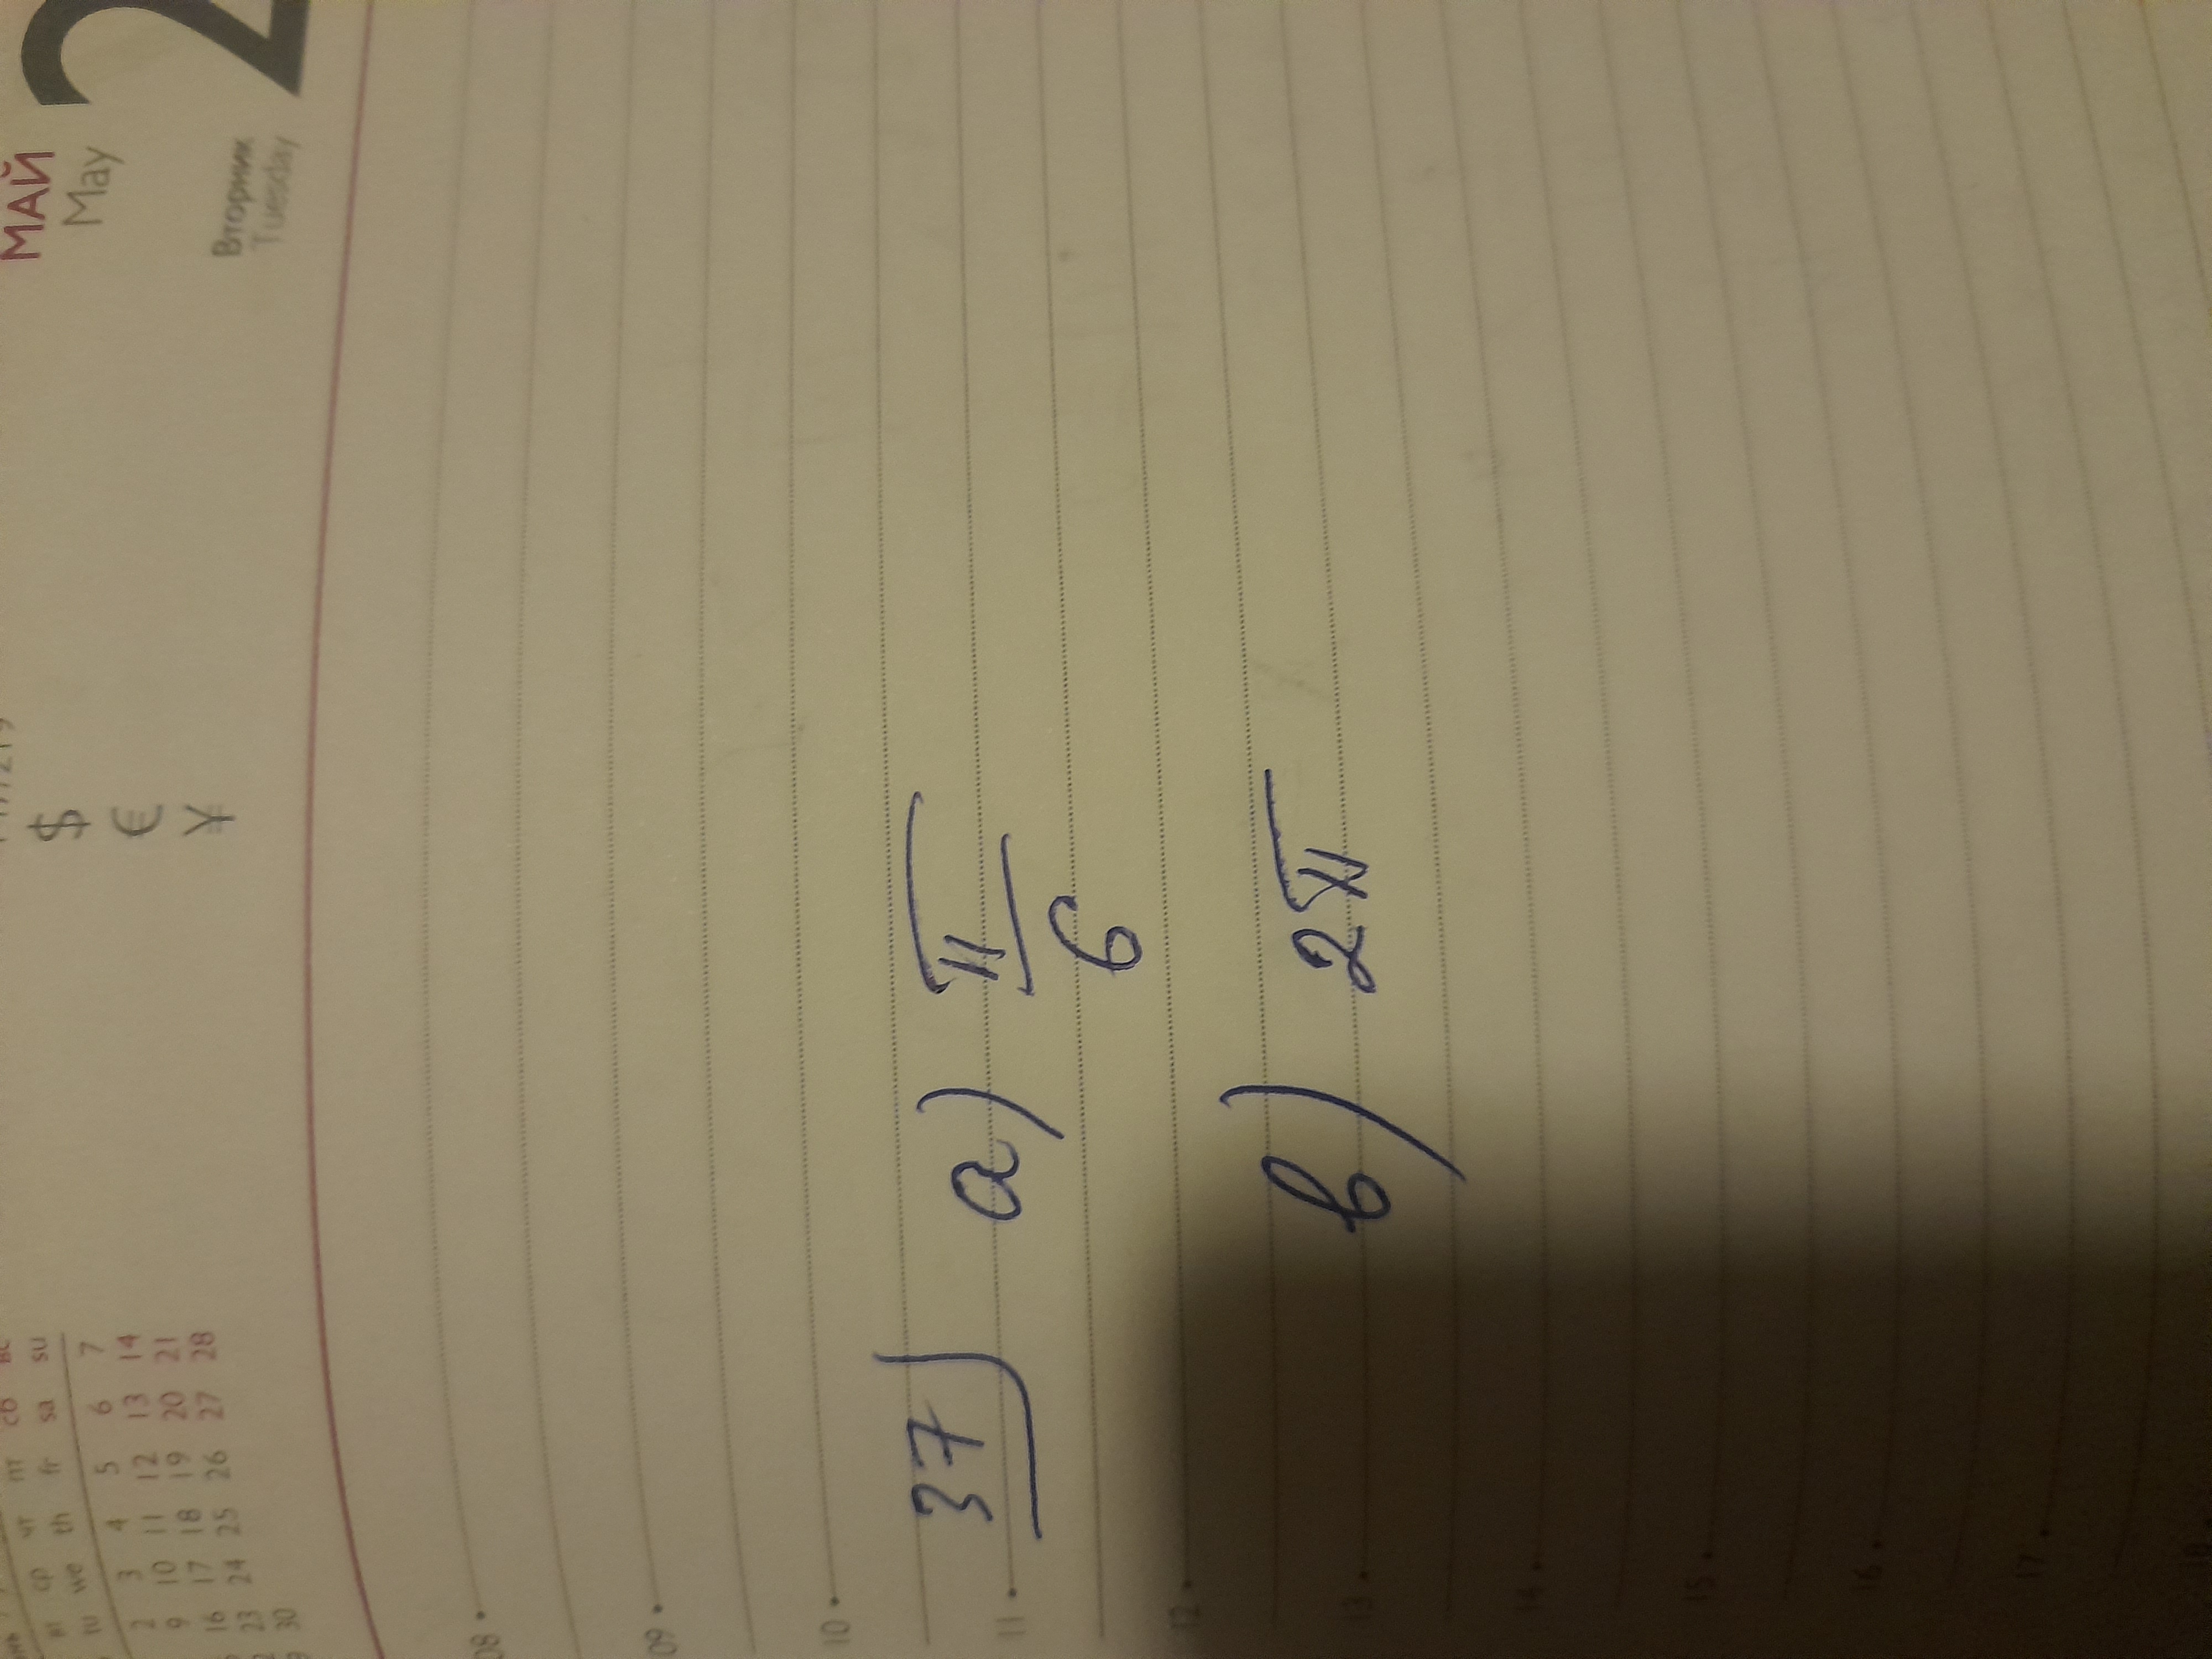 вт ср чт пт сб вс
tu we th fr sa su
2 3 4 5 6 7
9 10 11 12 13 14
16 17 18 19 20 21
23 24 25 26 27 28
30
$
€
¥
МАЙ
May
2
Вторник
Tuesday
08
09
10
37) а) π/6
11
12
в) 2π
13
14
15
16
17
18